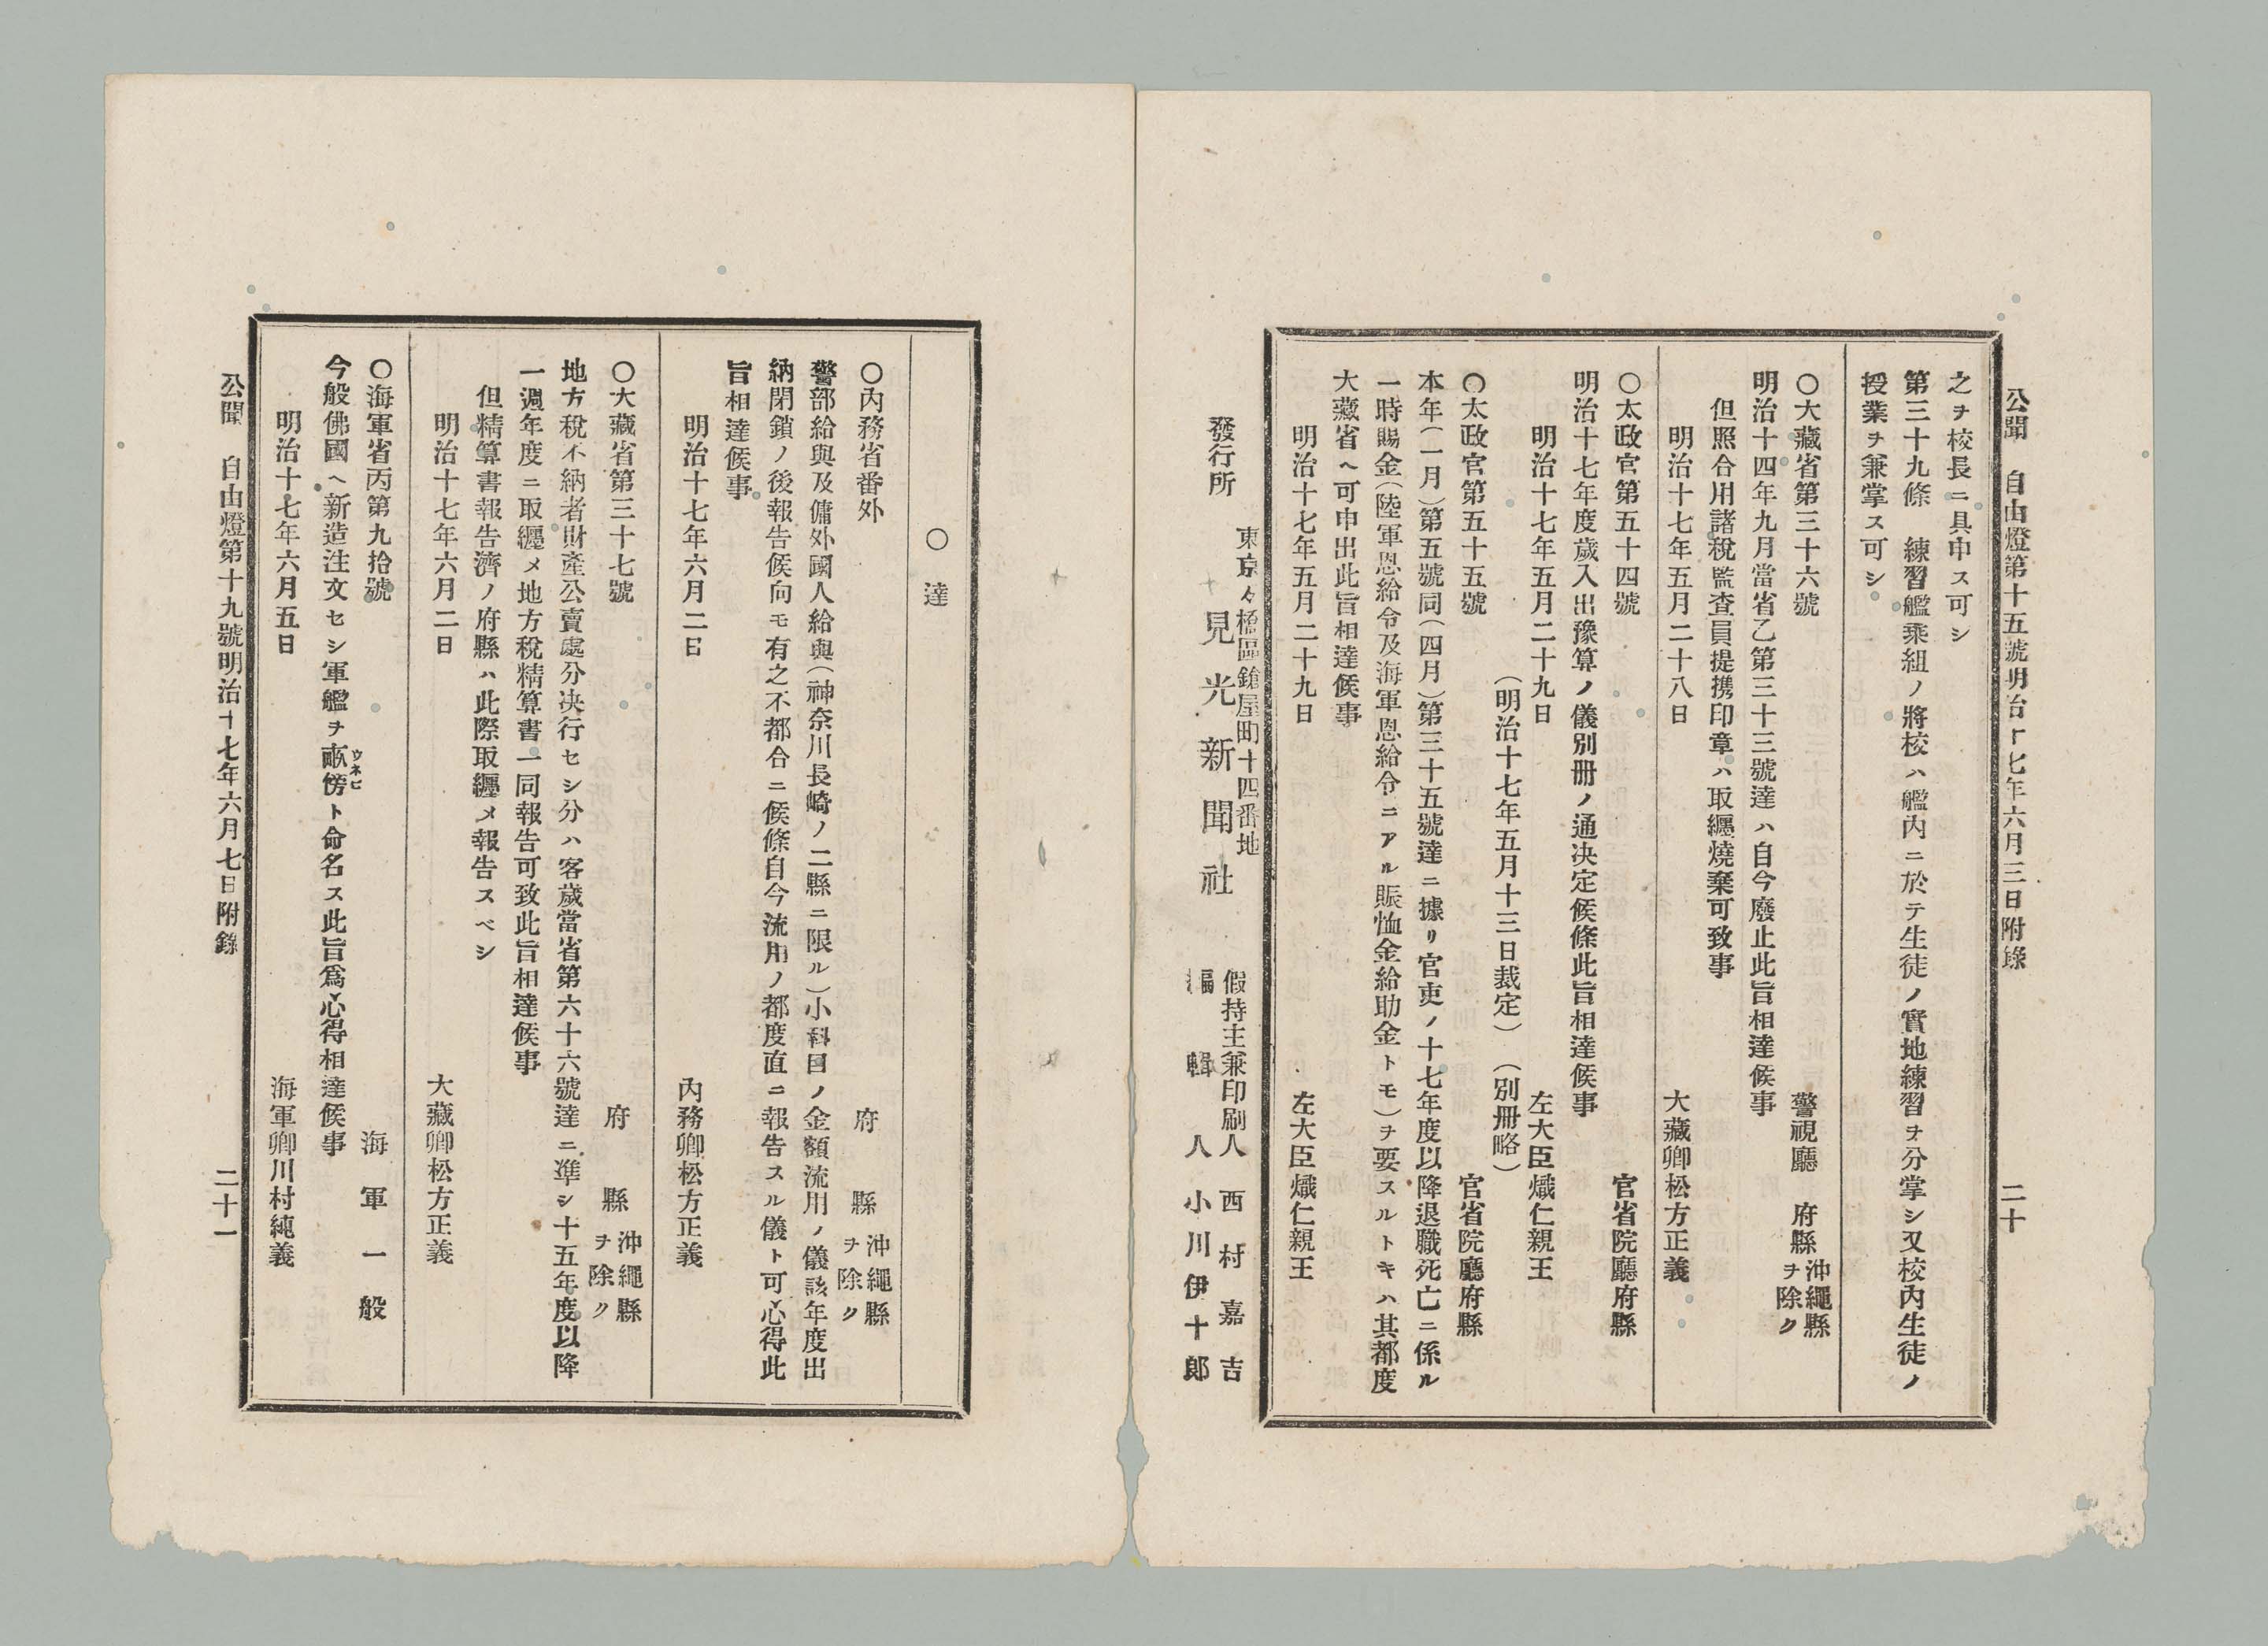 公聞　自由燈第十五號明治十七年六月三日附錄　二十
之ヲ校長ニ具申ス可シ
第三十九條　練習艦乘組ノ將校ハ艦内ニ於テ生徒ノ實地練習ヲ分掌シ又校内生徒ノ
授業ヲ兼掌ス可シ
○大藏省第三十六號　警視廳　府縣沖繩縣ヲ除ク
明治十四年九月當省乙第三十三號達ハ自今廢止此旨相達候事
但照合用諸稅監査員提携印章ハ取纒燒棄可致事
明治十七年五月二十八日　大藏卿松方正義
○太政官第五十四號　官省院廳府縣
明治十七年度歲入出豫算ノ儀別冊ノ通決定候條此旨相達候事
明治十七年五月二十九日　左大臣熾仁親王
（明治十七年五月十三日裁定）（別冊略）
○太政官第五十五號　官省院廳府縣
本年（一月）第五號同（四月）第三十五號達ニ據リ官吏ノ十七年度以降退職死亡ニ係ル
一時賜金（陸軍恩給令及海軍恩給令ニアル賑恤金給助金トモ）ヲ要スルトキハ其都度
大藏省ヘ可申出此旨相達候事
明治十七年五月二十九日　左大臣熾仁親王
東京々橋區鎗屋町十四番地
發行所　見光新聞社
假持主兼印刷人　西村嘉吉
編輯人　小川伊十郎
○達
○内務省番外　府縣沖繩縣ヲ除ク
警部給與及傭外國人給與（神奈川長崎ノ二縣ニ限ル）小科目ノ金額流用ノ儀該年度出
納閉鎖ノ後報告候向モ有之不都合ニ候條自今流用ノ都度直ニ報告スル儀ト可心得此
旨相達候事
明治十七年六月二日　内務卿松方正義
○大藏省第三十七號　府縣沖繩縣ヲ除ク
地方稅不納者財產公賣處分決行セシ分ハ客歲當省第六十六號達ニ準シ十五年度以降
一週年度ニ取纒メ地方稅精算書一同報告可致此旨相達候事
但精算書報告濟ノ府縣ハ此際取纒メ報告スベシ
明治十七年六月二日　大藏卿松方正義
○海軍省丙第九拾號　海軍一般
今般佛國ヘ新造注文セシ軍艦ヲ畝傍ウネビト命名ス此旨爲心得相達候事
明治十七年六月五日　海軍卿川村純義
公聞　自由燈第十九號明治十七年六月七日附錄　二十一